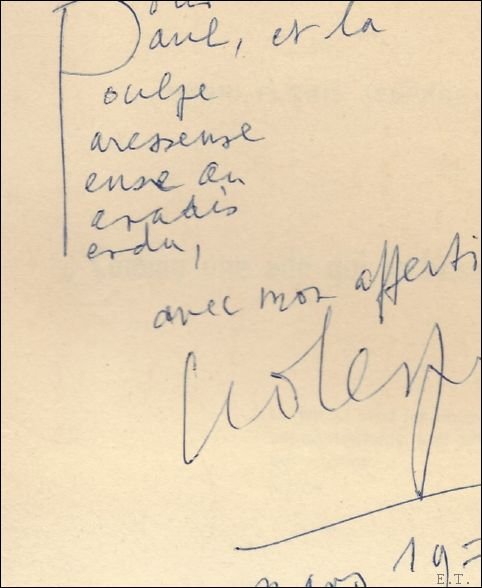 Paul, et la
oulpe
aresseuse
ense au
aradis
erdu,
avec mon affecti
mars 19
E.T.